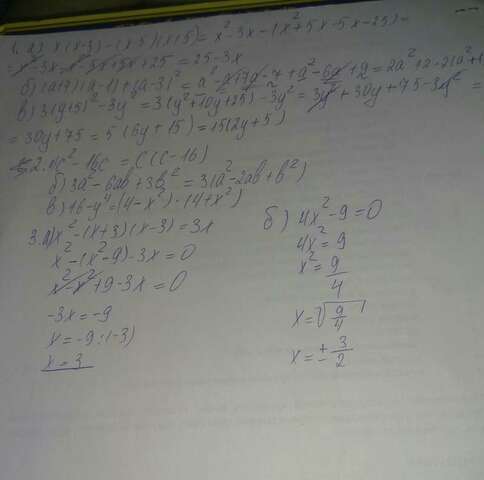 1. а) x(x-3)-(x-5)(x+5)= x²-3x-(x²+5x-5x-25)=
= x²-3x-x²-5x+5x+25 = 25-3x
б) (a+7)(a-1)+(a-3)² = a²-a+7a-7+a²-6a+9 = 2a²
в) 3(y+5)²-3y² = 3(y²+10y+25)-3y² = 3y²+30y+75-3y² =
= 30y+75 = 5(6y+15) = 15(2y+5)
2. c²-16c = c(c-16)
б) 3a²-6ab+3b² = 3(a²-2ab+b²)
в) 16-y⁴=(4-x²)·(4+x²)
3. а) x²-(x+3)(x-3)= 3x
x²-(x²-9)-3x=0
x²-x²+9-3x=0
-3x=-9
x=-9:(-3)
x=3
б) 4x²-9=0
4x²=9
x²=9/4
x=√9/4
x=±3/2